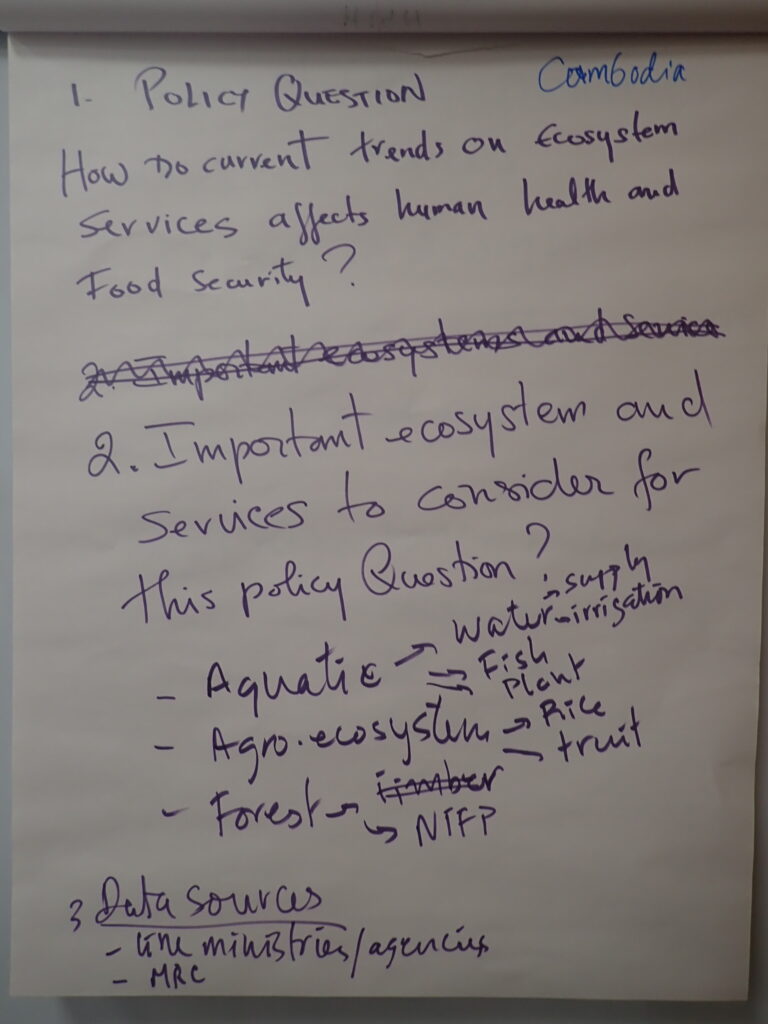 Cambodia
1. POLICY QUESTION
How Do current trends on Ecosystem
Services affects human health and
Food Security?
2. Important ecosystems and Services
2. Important ecosystem and
Services to consider for
this policy Question?
- Aquatic → water - supply
- irrigation
Fish
Plant
- Agro-ecosystem → Rice
- fruit
- Forest → timber
→ NTFP
3 Data sources
- line ministries/agencies
- MRC